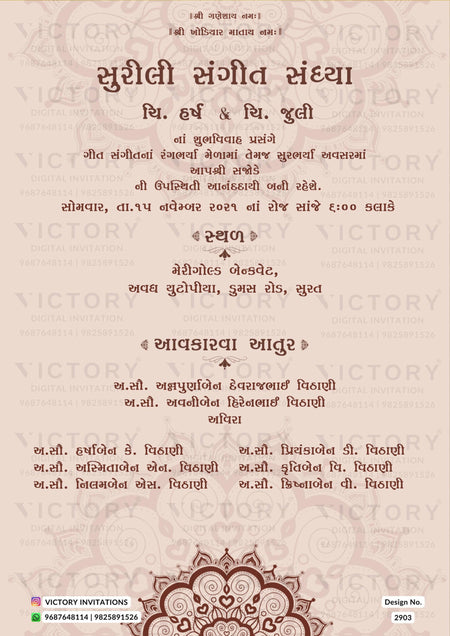 ॥શ્રી ગણેશાય નમઃ॥
॥શ્રી ખોડિયાર માતાય નમઃ॥
સુરીલી સંગીત સંધ્યા
ચિ. હર્ષ & ચિ. જુલી
નાં શુભવિવાહ પ્રસંગે
ગીત સંગીતનાં રંગભર્યા મેળામાં તેમજ સુરભર્યા અવસરમાં
આપશ્રી સજોડે
ની ઉપસ્થિતી આનંદદાયી બની રહેશે.
સોમવાર, તા.૧૫ નવેમ્બર ૨૦૨૧ નાં રોજ સાંજે ૬:૦૦ કલાકે
સ્થળ
મેરીગોલ્ડ બેન્કવેટ,
અવધ યુટોપીયા, ડુમસ રોડ, સુરત
આવકારવા આતુર
અ.સૌ. અન્નપુર્ણાબેન દેવરાજભાઈ વિઠાણી
અ.સૌ. અવનીબેન હિરેનભાઈ વિઠાણી
અવિરા
અ.સૌ. હર્ષાબેન કે. વિઠાણી અ.સૌ. પ્રિયંકાબેન ડી. વિઠાણી
અ.સૌ. અસ્મિતાબેન એન. વિઠાણી અ.સૌ. કૃતિબેન વિ. વિઠાણી
અ.સૌ. નિલમબેન એસ. વિઠાણી અ.સૌ. ક્રિષ્નાબેન વી. વિઠાણી
VICTORY
DIGITAL INVITATION
9687648114 | 9825891526
VICTORY INVITATIONS
9687648114 | 9825891526
Design No.
2903